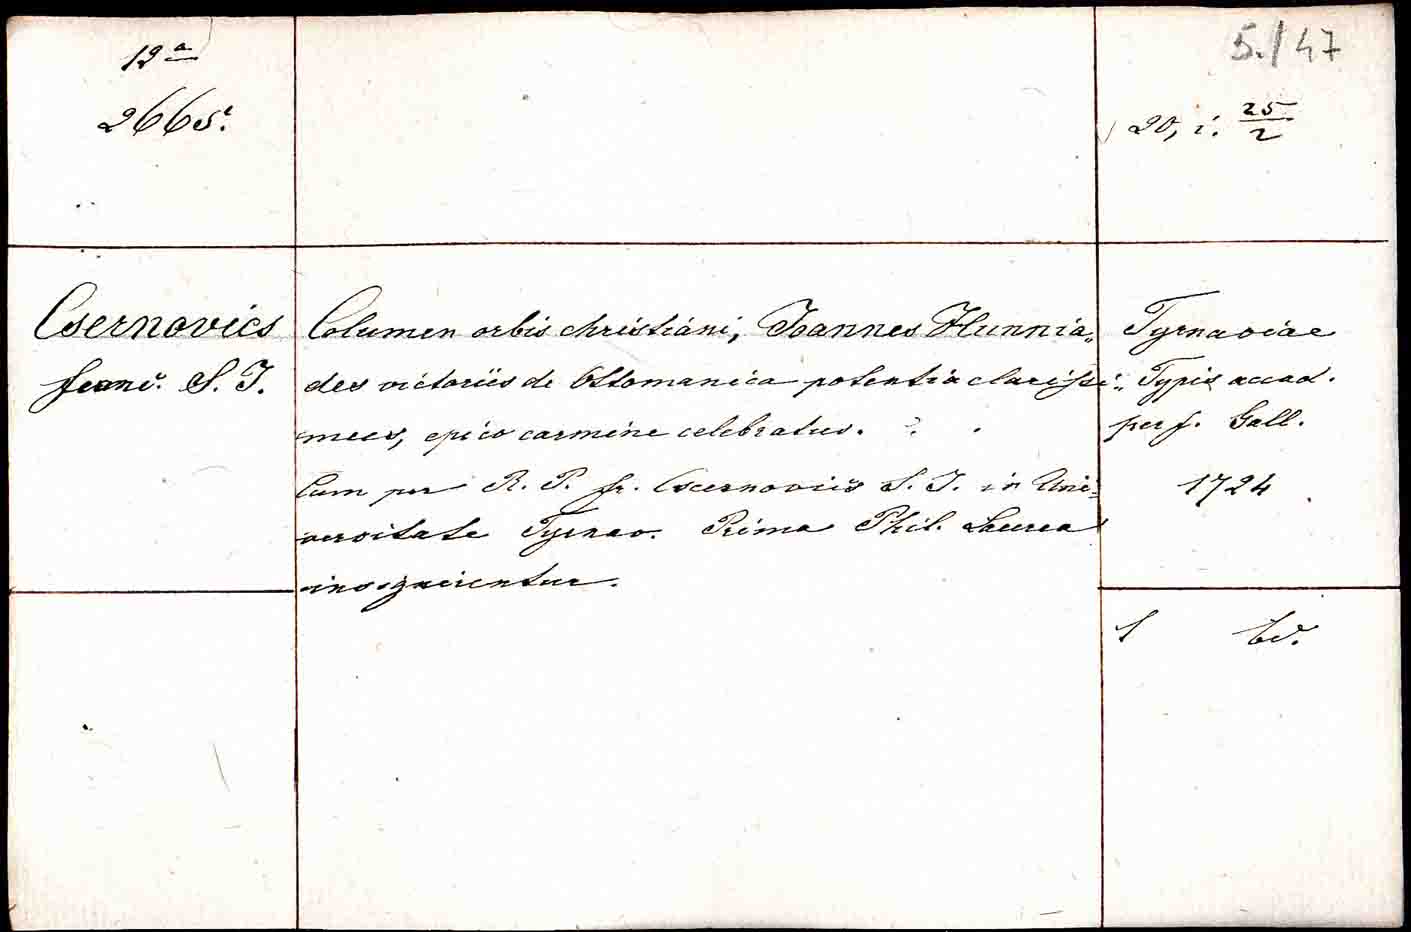 12a
2665.
5./47
20, i. 25/2
Csernovics
franc. S. J.
Columen orbis christiani, Joannes Hunnia„
des victoriis de Ottomanica potentia clarissi„
mus, epico carmine celebratus.
Cum per R. P. fr. Csernovics S. J. in Uni„
versitate Tyrnav. Prima Phil. Laurea
insignirentur.
Tyrnaviae
Typis accad.
per f. Gall.
1724
1 Bd.